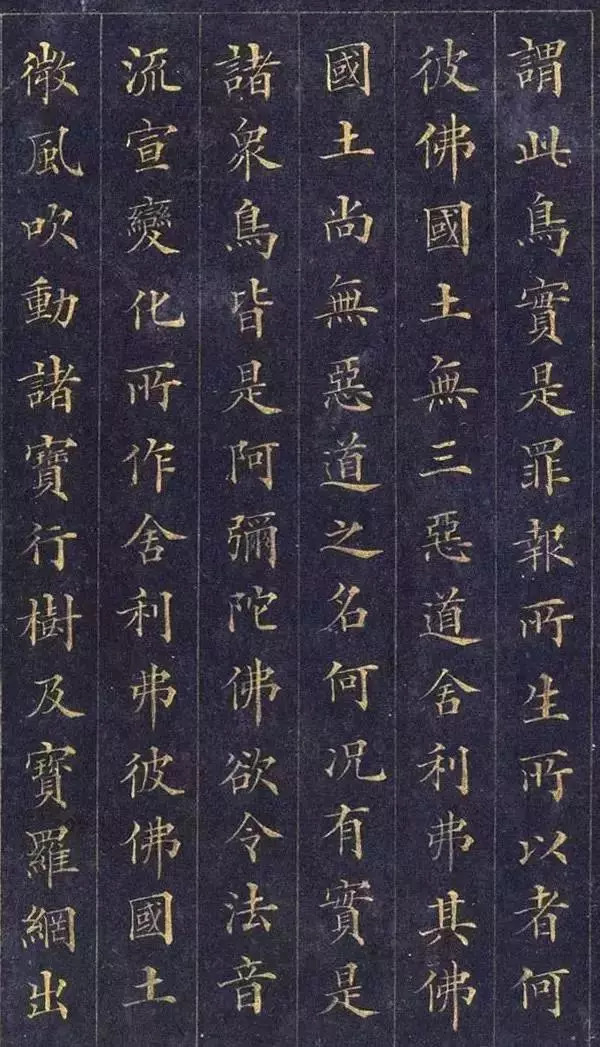 謂此鳥實是罪報所生所以者何
彼佛國土無三惡道舍利弗其佛
國土尚無惡道之名何况有實是
諸衆鳥皆是阿彌陀佛欲令法音
流宣變化所作舍利弗彼佛國土
微風吹動諸寶行樹及寶羅網出